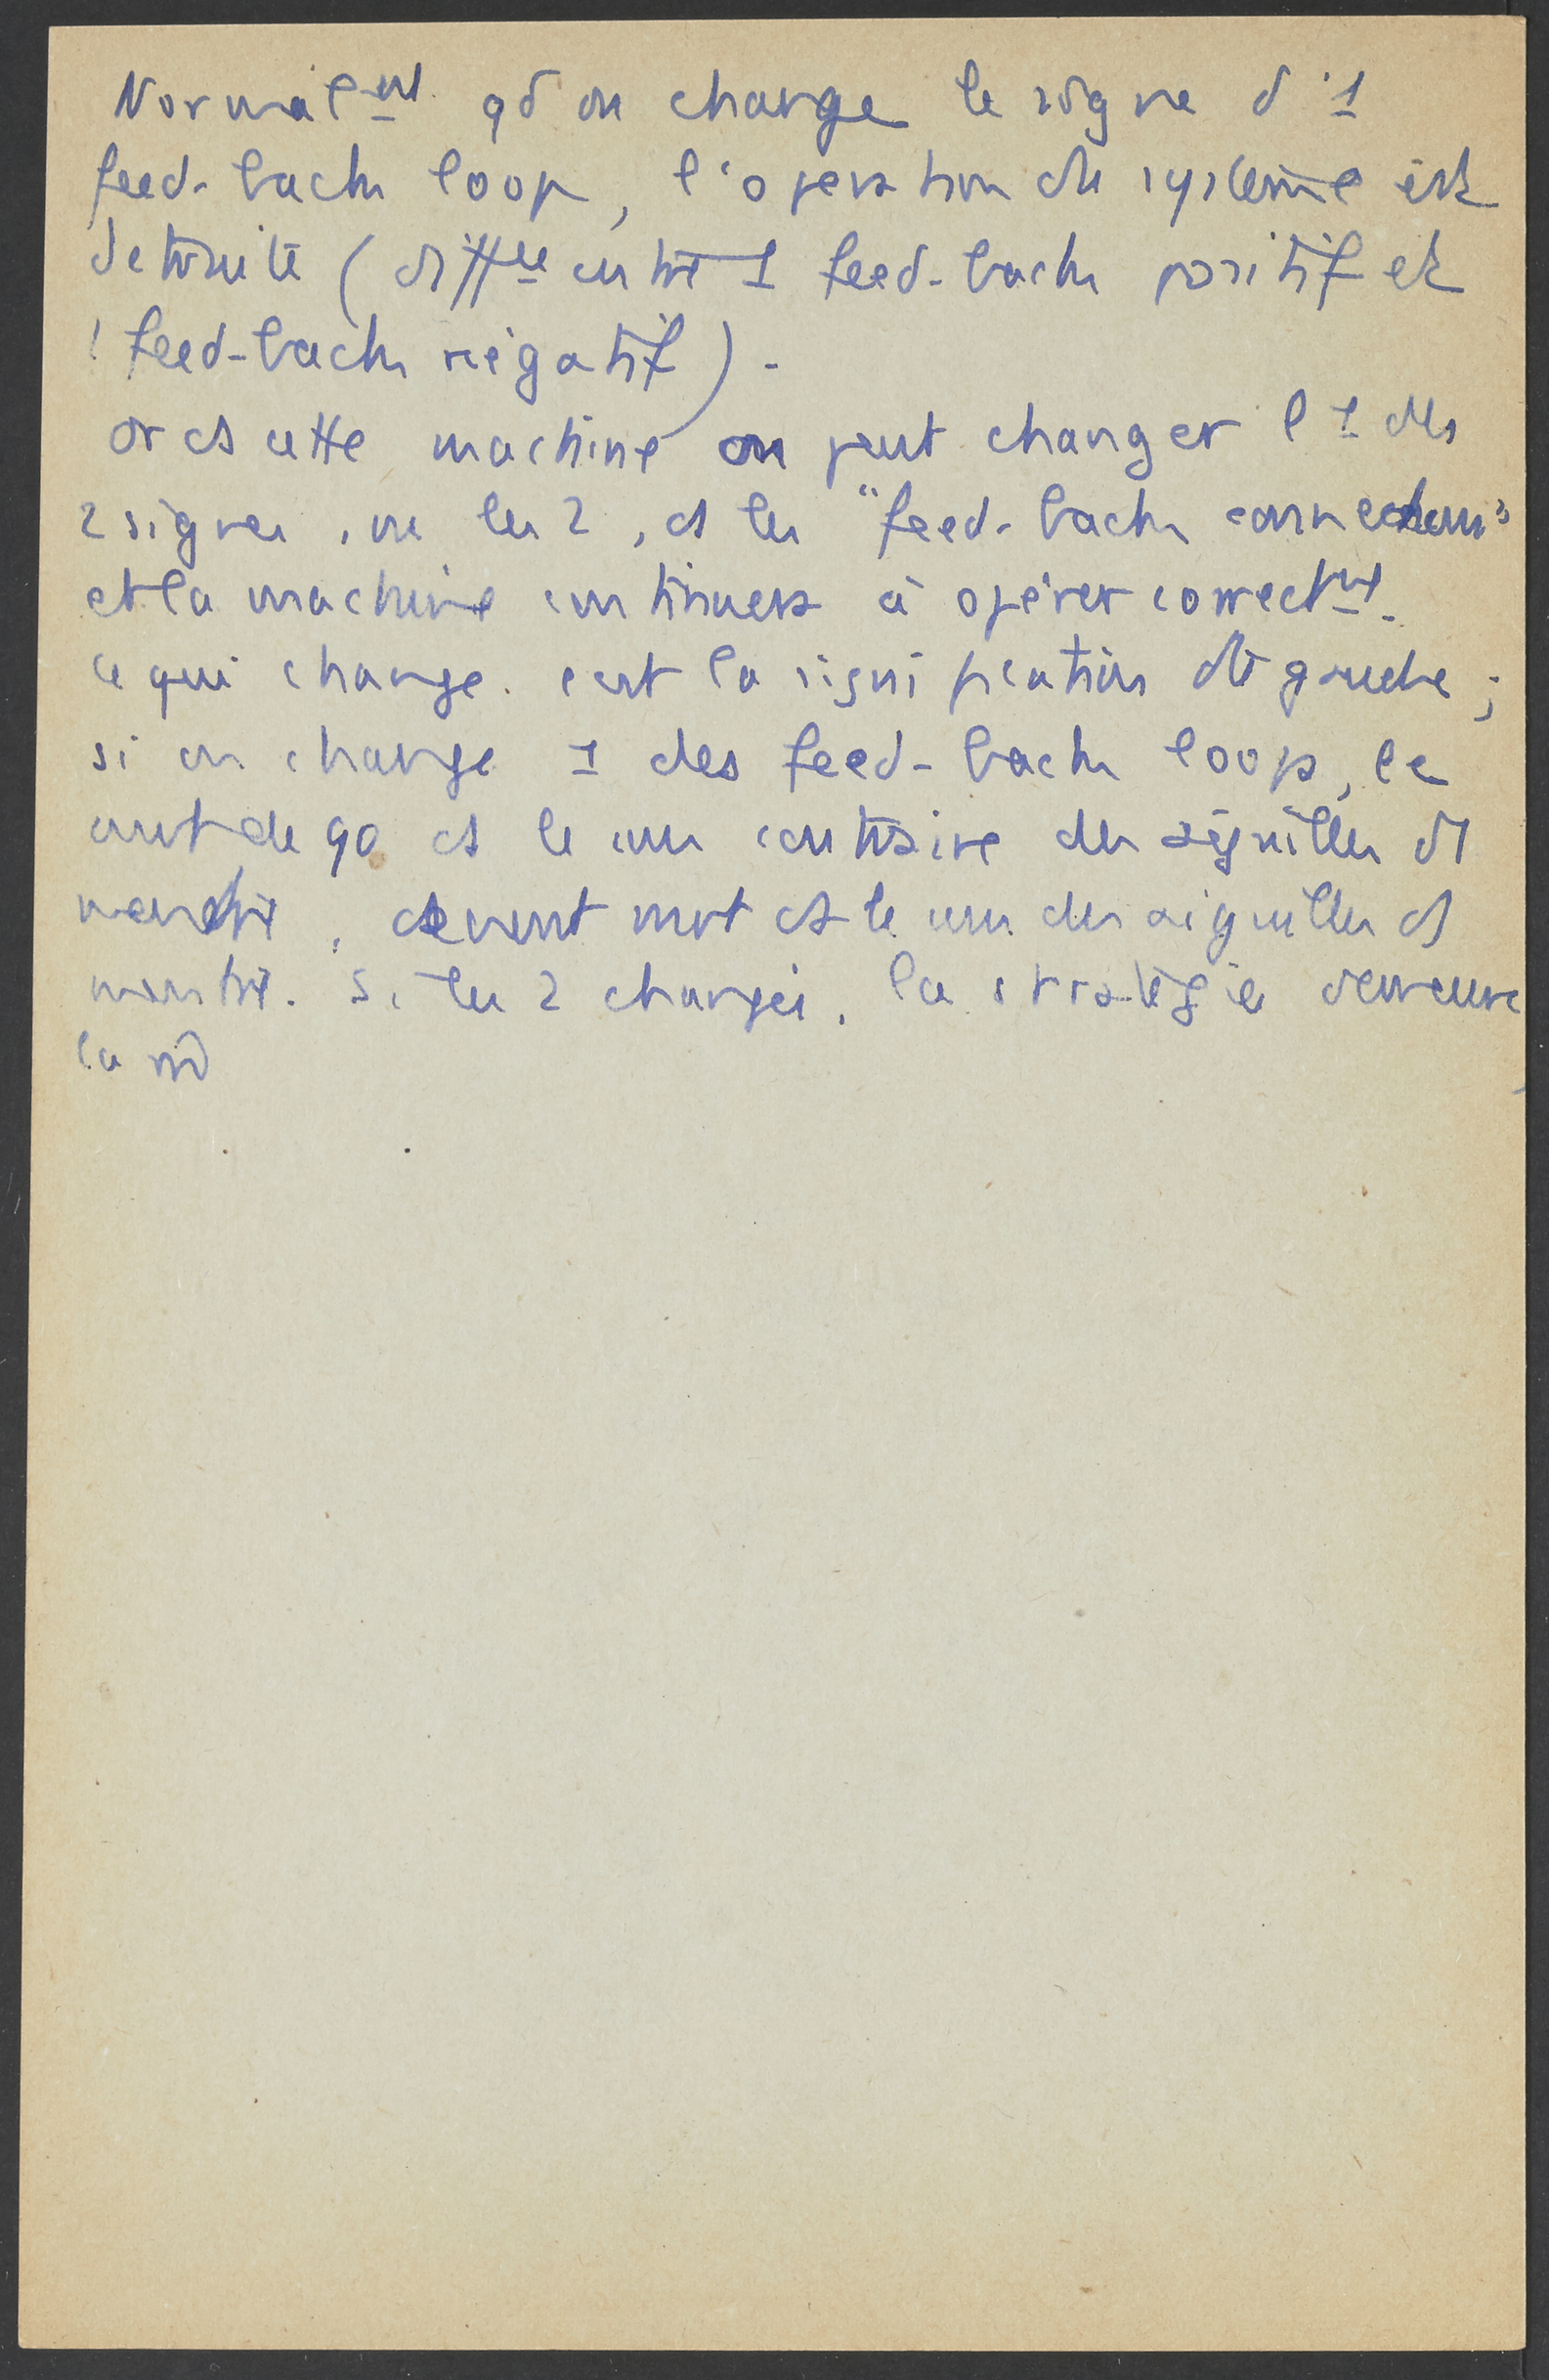 Normalent qd on change le signe d'1
feed-back loop, l'operation du système est
detruite (diffce entre 1 feed-back positif et
1 feed-back négatif).
or ds cette machine on peut changer l'1 des
2 signes, ou les 2, ds les "feed-back connections"
et la machine continuera à opérer correctmt.
ce qui change. c'est la signification de gauche ;
si on change 1 des feed-back loop, le
mvt de 90 ds le sens contraire des aiguilles d1
montre, devient mvt ds le sens des aiguilles d1
montre. Si les 2 changés, la stratégie demeure
la m̂